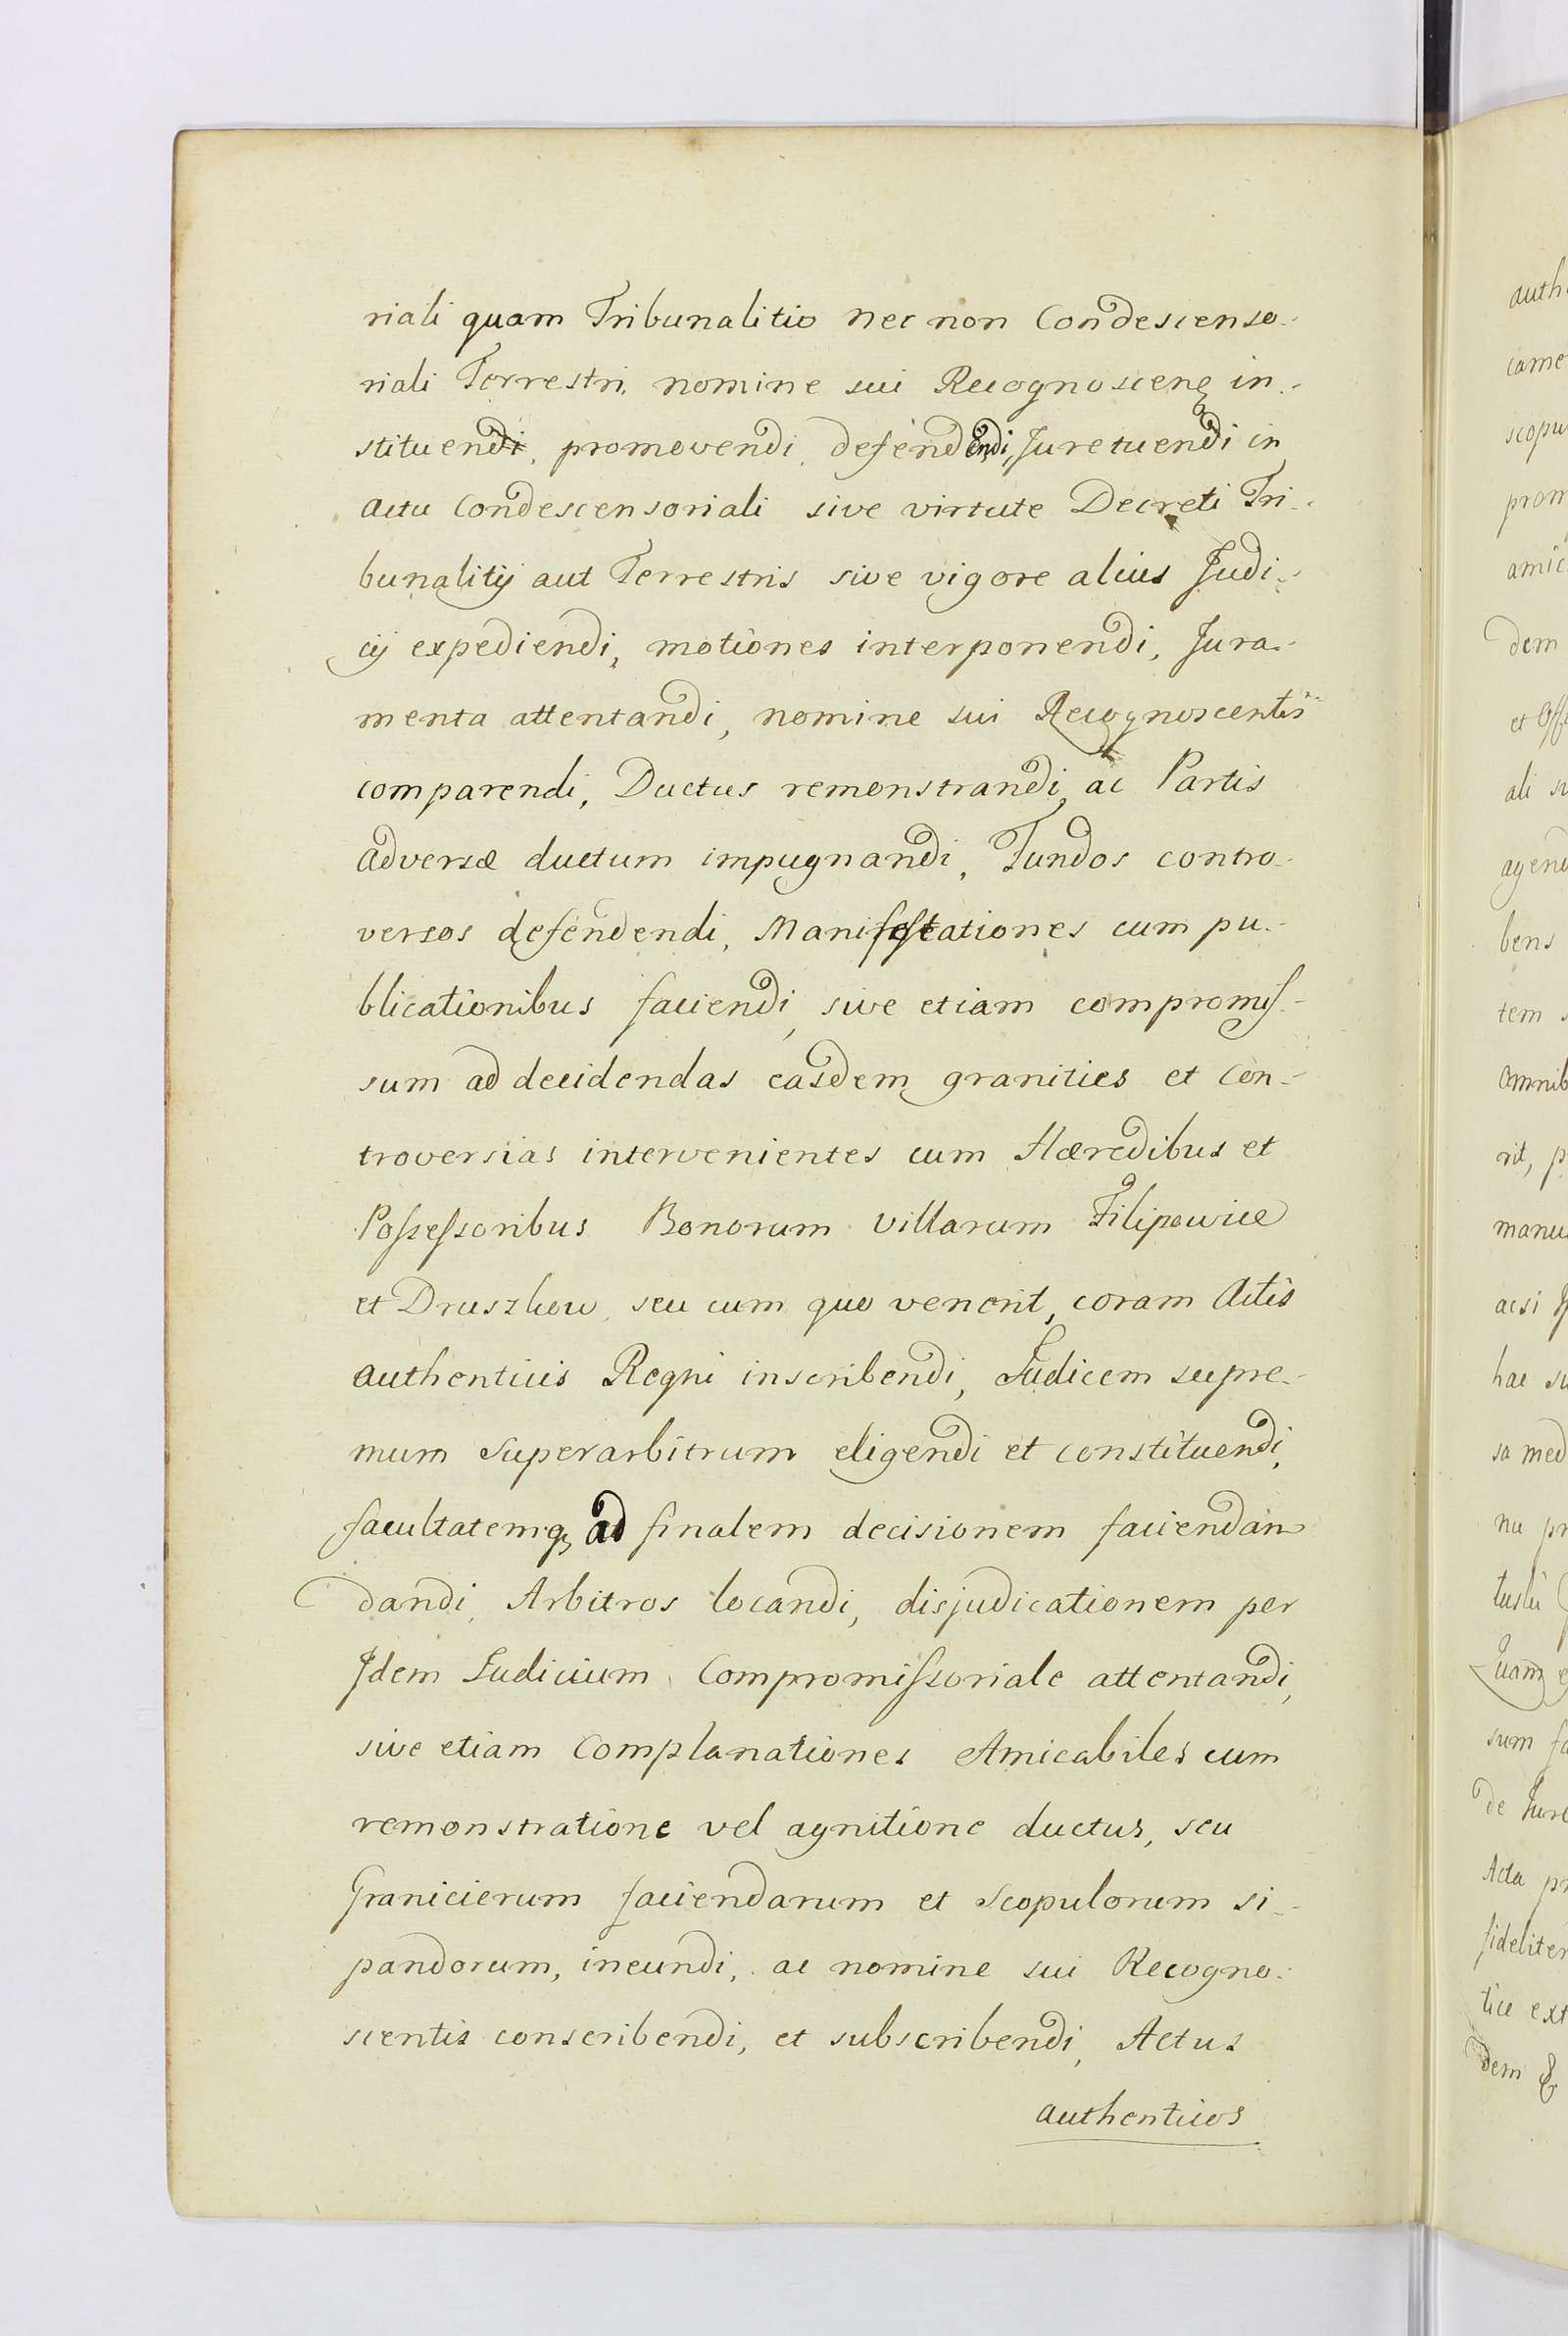 riali quam Tribunalitio nec non Condescenso-
riali Terrestri, nomine sui Recognoscenꝫ in-
stituendi, promovendi, defendendi, Juretuendi in
actu Condescensoriali sive virtute Decreti Tri-
bunalitij aut Terrestris sive vigore alius Judi-
cij expediendi, motiones interponendi, Jura-
menta attentandi, nomine sui Recognoscentis
comparendi, Ductus remonstrandi, ac Partis
adversæ ductum impugnandi, Fundos contro-
versos defendendi, Manifestationes cum pu-
blicationibus faciendi, sive etiam compromiſ-
sum ad decidendas easdem granities et con-
troversias intervenientes cum Hæredibus et
Poſseſsoribus Bonorum villarum Filipowice
et Druszkow, seu cum quo venerit, coram Actis
authenticis Regni inscribendi, Judicem supre-
mum Superarbitrum eligendi et constituendi,
facultatemqꝫ ad finalem decisionem faciendam
dandi, Arbitros locandi, disjudicationem per
Jdem Judicium Compromiſsoriale attentandi,
sive etiam Complanationes Amicabiles cum
remonstratione vel agnitione ductus, seu
Granicierum faciendarum et Scopulorum si-
pandorum, ineundi, ac nomine sui Recogno-
scentis conscribendi, et subscribendi, Actus
authenticos
auth
came
scopu
prom
amic
dem
et Off
ali su
agend
bens
tem s
omnib
rit, p
manu
acsi
hac su
sa med
nu pr
tuslii
Quam
sum fa
de Jure
Acta pr
fideliter
tice ext
dem